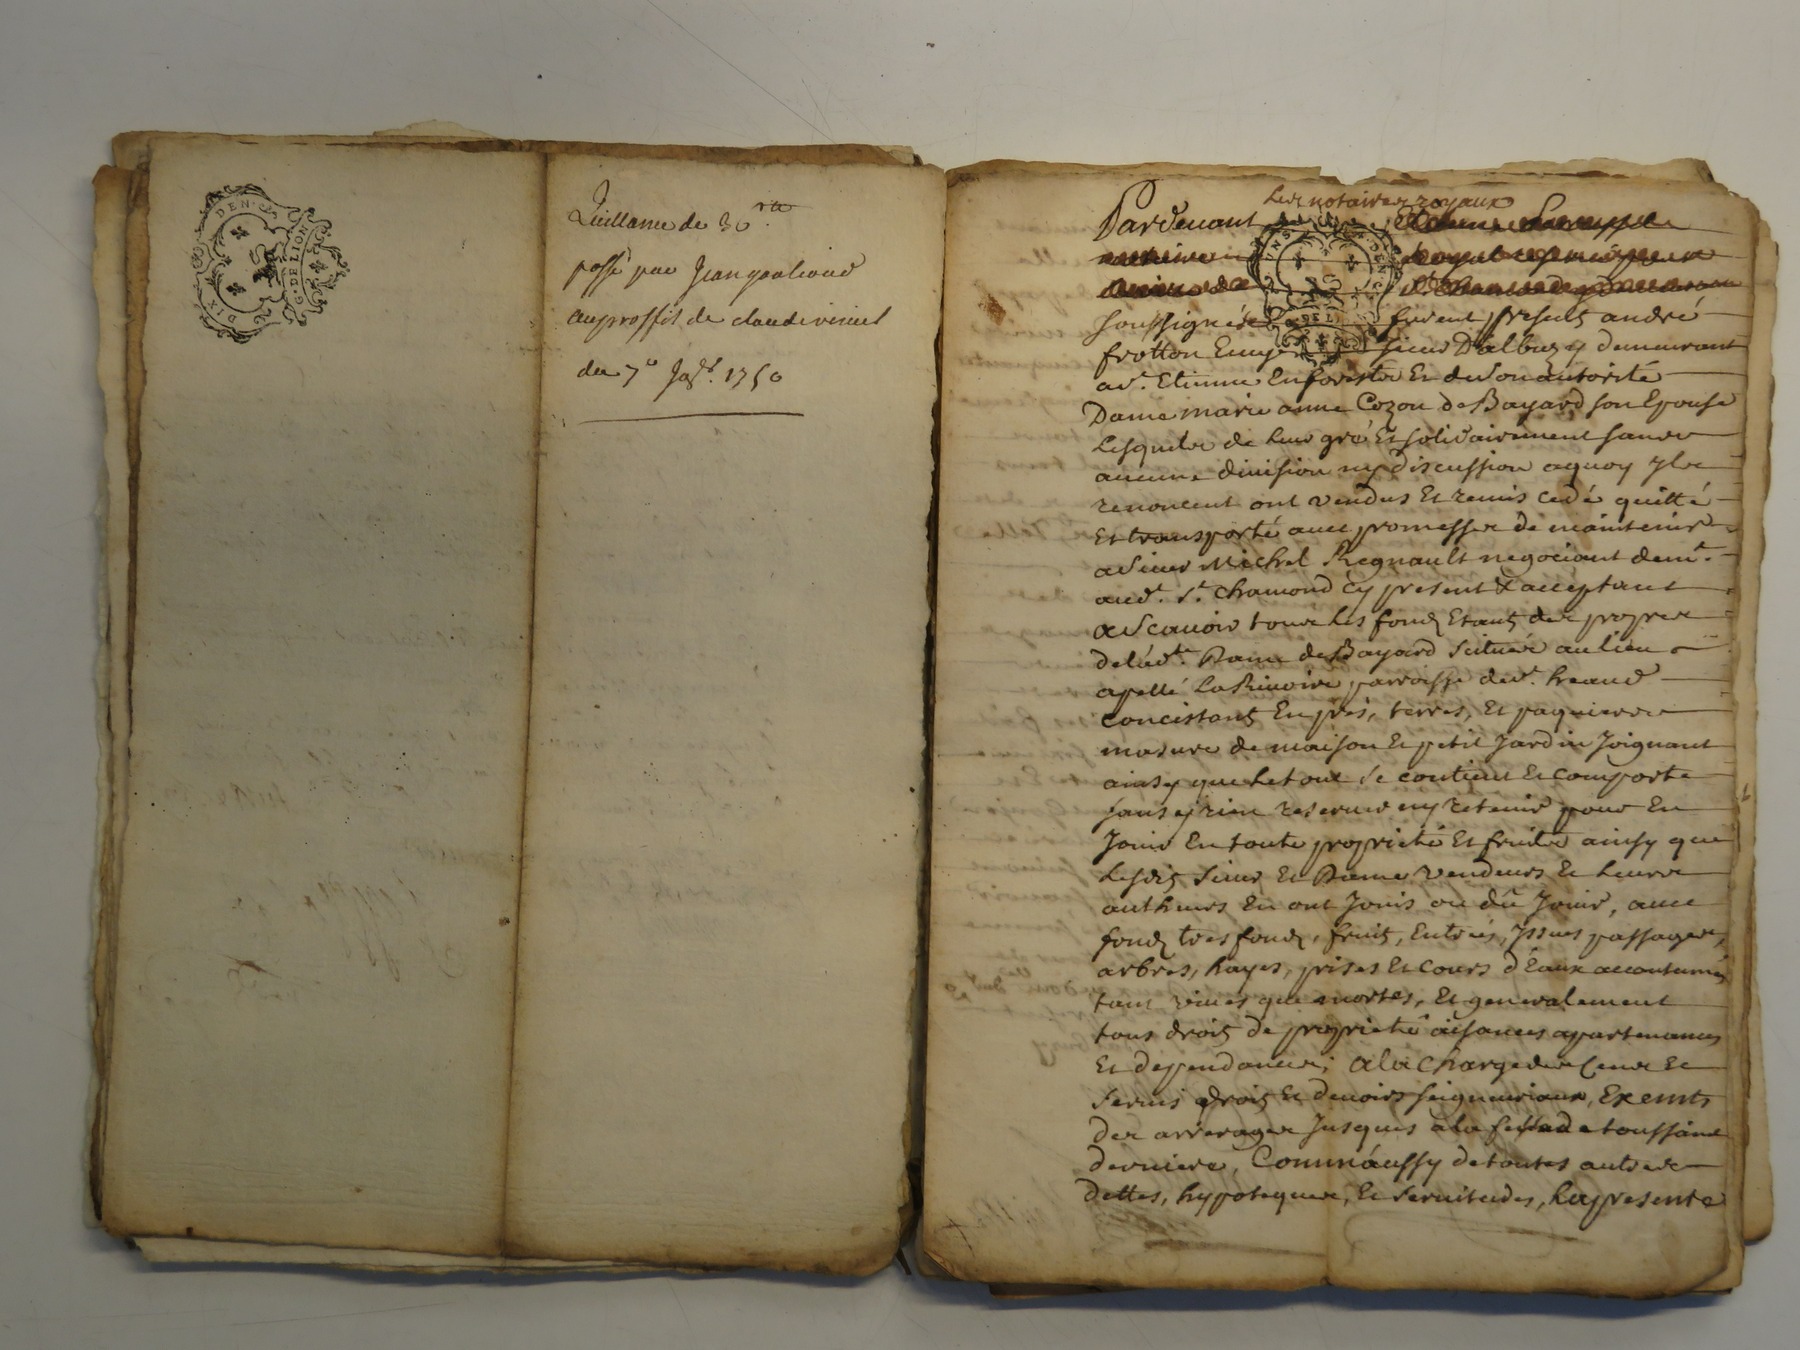 DIX DEN.
G. DE LION
Quittance de 30 #
passé par Jean
au proffit de claude
du 7e 1750
Les notaires royaux
Pardevant
soussignés furent presents andré
frotton Ecuyer sieur D'albuzy demeurant
a St. Etienne En forests Et de son autorité
Dame marie anne Cozon de Bayard son Epouse
Lesquels de leur gré Et solidairement sans
aucune division ny discussion a quoy ils
renoncent ont vendus Et remis cedé quitté
Et transporté avec promesse de maintenir
a Sieur Michel Regnault negociant demt.
aud. St. Chamond cy present & acceptant
a Scavoir tous les fonds Etants des propres
de lad.te Dame de Bayard scitués au lieu
apellé La Rivoire parroisse de St. heand
concistants En prés, terres, Et paquiers
masure de maison Et petit Jardin Joignant
ainsy que le tout se contient Et comporte
sans y rien reserver ny retenir pour En
Jouir En toute proprieté Et fruits ainsy que
Lesdits sieur Et Dame vendeurs Et leurs
autheurs En ont Jouis ou dû Jouir, avec
fonds tres fonds, fruits, Entrées, Issues passages,
arbres, hayes, prises Et cours d'Eaux accoutumés
tant vives que mortes, Et generalement
tous droits de proprieté aisances apartenances
Et dependances; a la Charge des Cens Et
servis droits Et devoirs seigneuriaux, Exempts
des arrerages Jusques a la feste de toussaint
derniere, Comm'aussy de toutes autres
dettes, hypoteques, Et servitudes, La presente